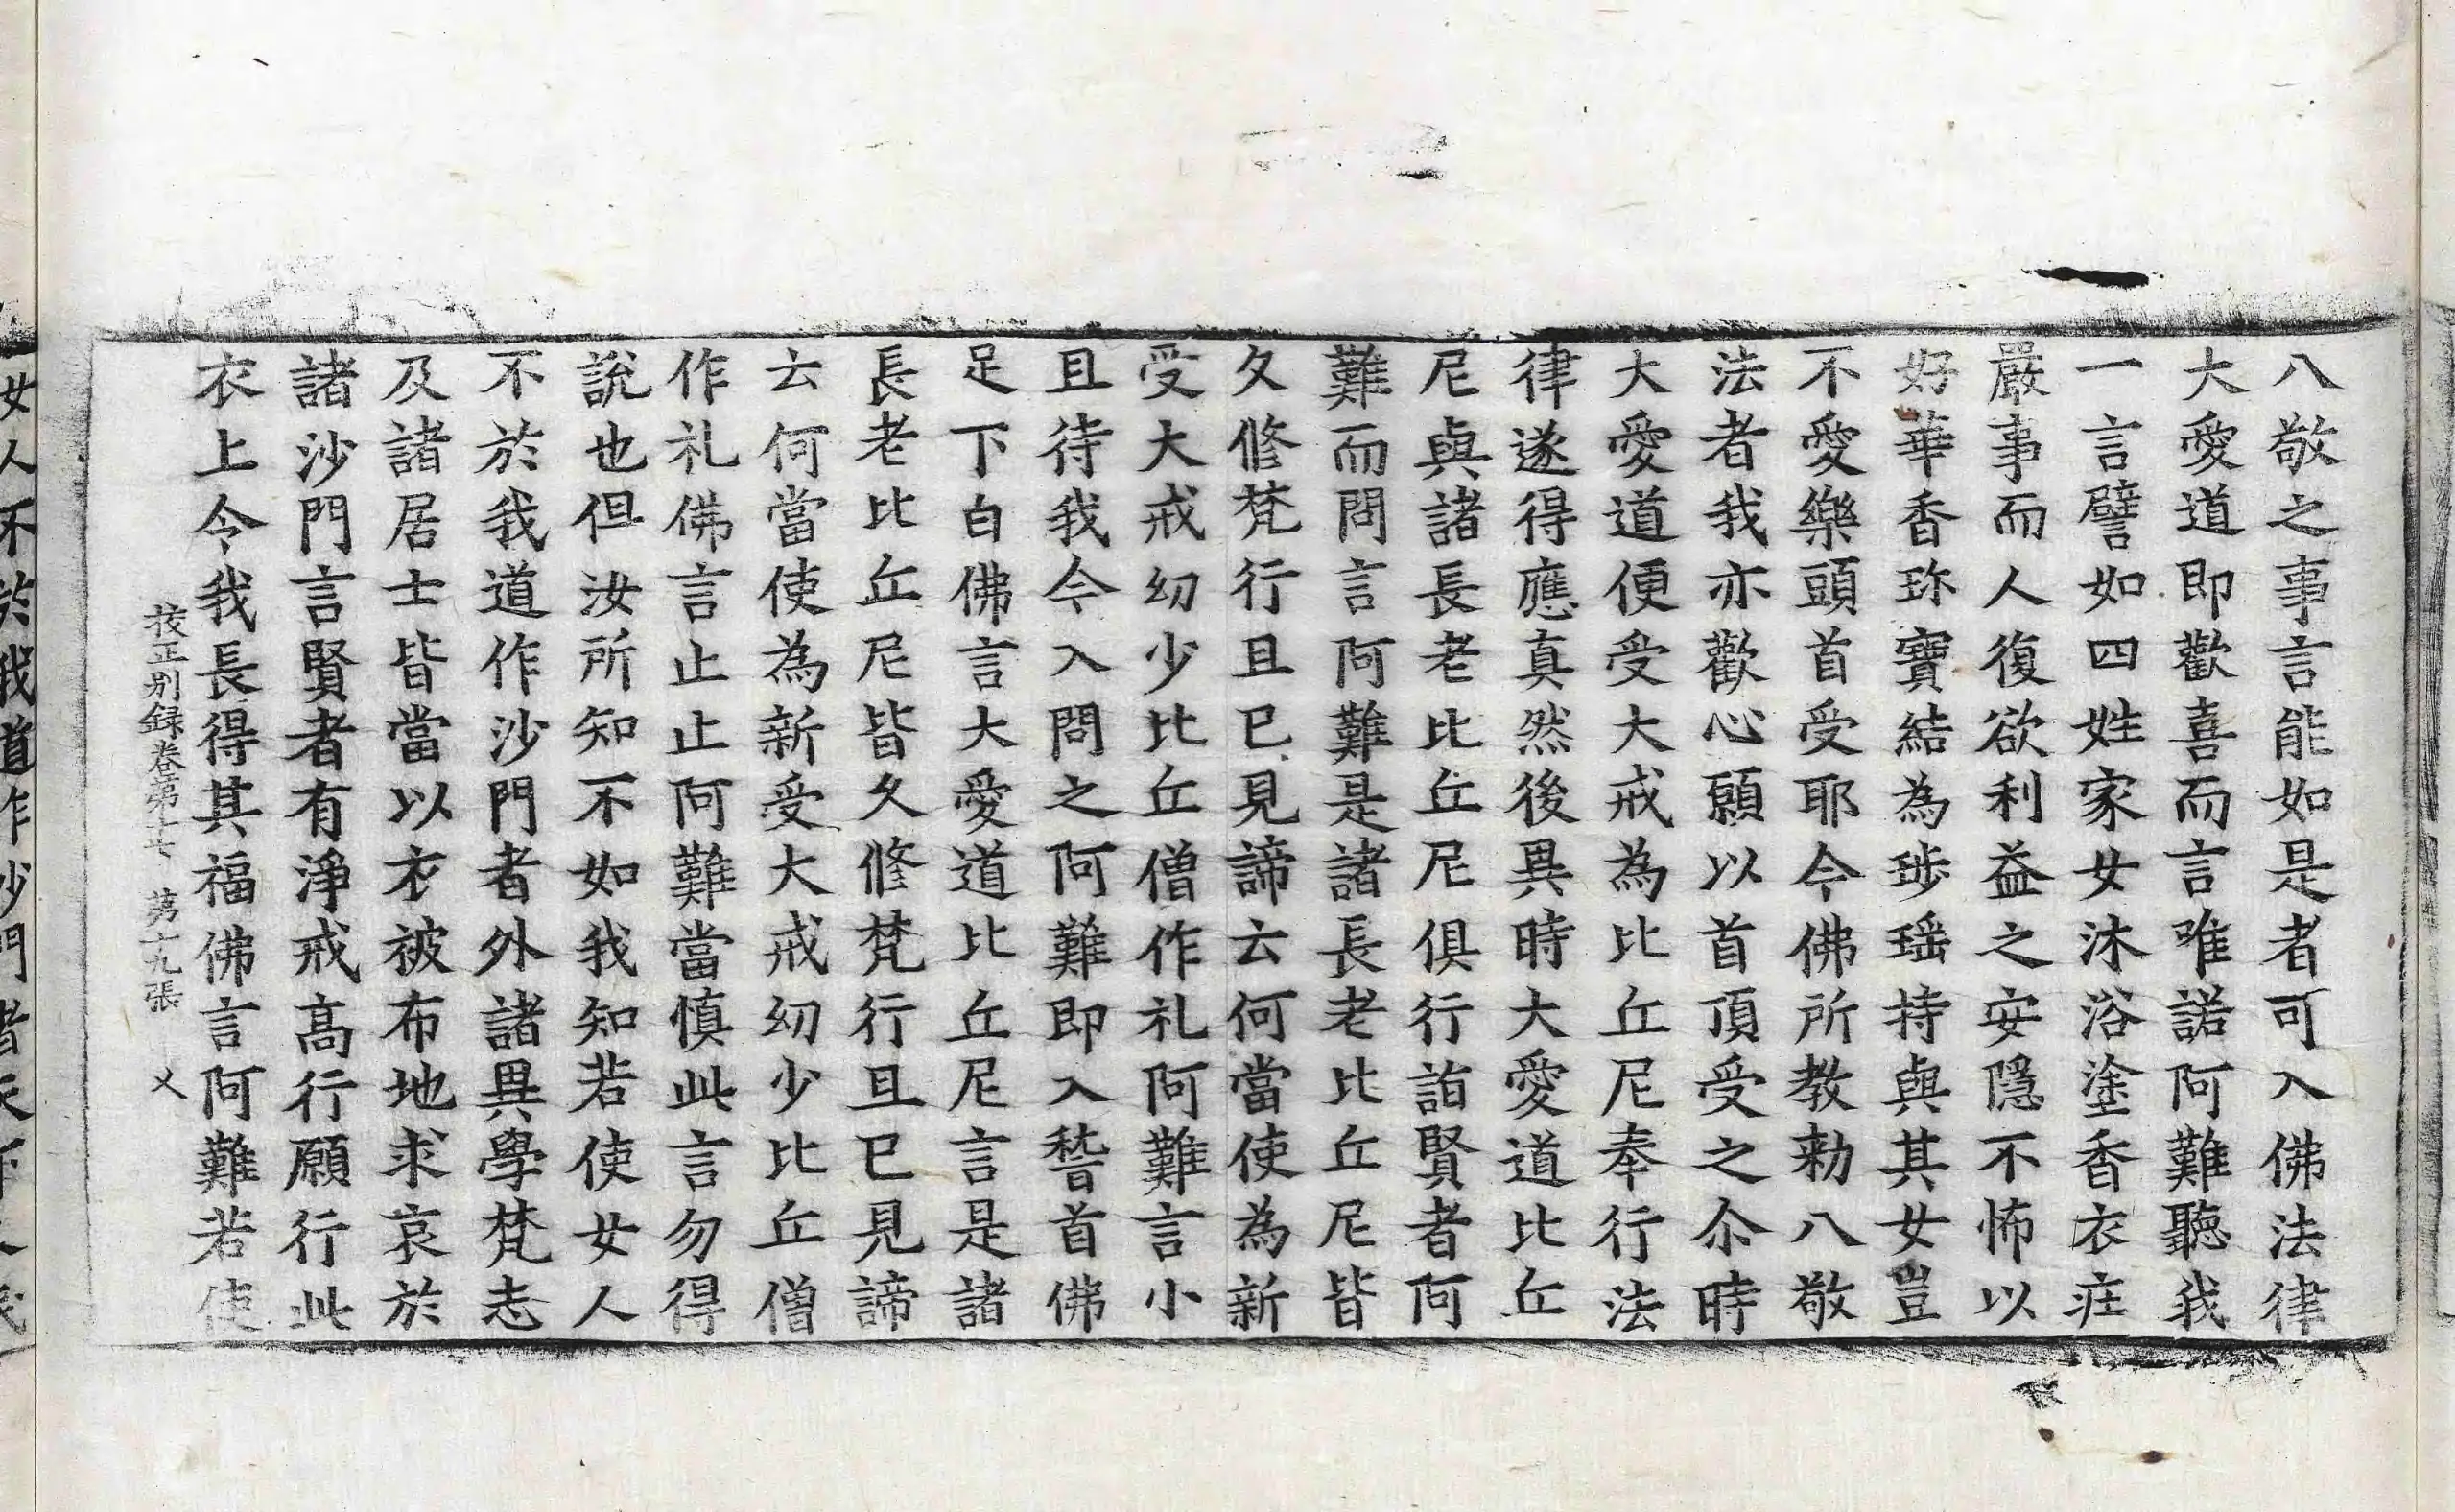 八敬之事言能如是者可入佛法律
大愛道即歡喜而言唯諾阿難聽我
一言譬如四姓家女沐浴塗香衣㽵
嚴事而人復欲利益之安隱不怖以
好華香珎寶結為㻉瑶持與其女豈
不愛樂頭首受耶今佛所教勑八敬
法者我亦歡心願以首頂受之尒時
大愛道便受大戒為比丘尼奉行法
律遂得應真然後異時大愛道比丘
尼與諸長老比丘尼俱行詣賢者阿
難而問言阿難是諸長老比丘尼皆
久修梵行且已見諦云何當使為新
受大戒幼少比丘僧作礼阿難言小
且待我今入問之阿難即入嵆首佛
足下白佛言大愛道比丘尼言是諸
長老比丘尼皆久修梵行且已見諦
云何當使為新受大戒幼少比丘僧
作礼佛言止止阿難當慎此言勿得
說也但汝所知不如我知若使女人
不於我道作沙門者外諸異學梵志
及諸居士皆當以衣被布地求哀於
諸沙門言賢者有淨戒高行願行此
衣上令我長得其福佛言阿難若使
校正別録卷第十七 第十九張 㐅
女人不於我道作沙門者天下人我